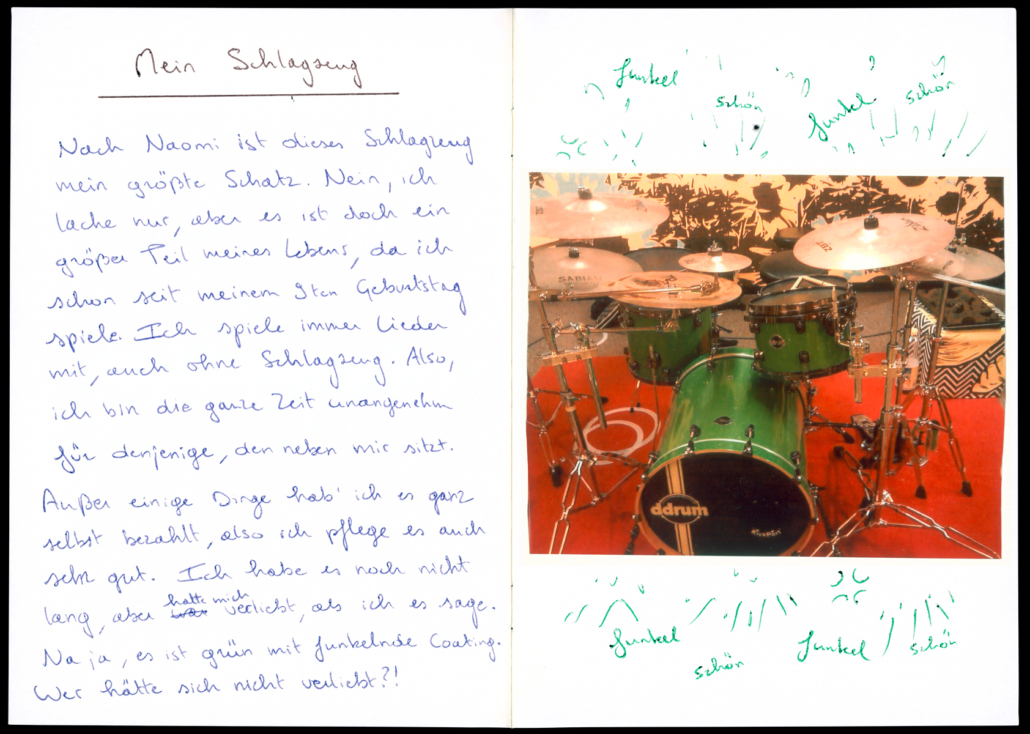 Mein Schlagzeug
Nach Naomi ist dieses Schlagzeug
mein größte Schatz. Nein, ich
lache nur, aber es ist doch ein
großer Teil meines Lebens, da ich
schon seit meinem 9ten Geburtstag
spiele. Ich spiele immer Lieder
mit, auch ohne Schlagzeug. Also,
ich bin die ganze Zeit unangenehm
für denjenige, den neben mir sitzt.
Außer einige Dinge hab' ich es ganz
selbst bezahlt, also ich pflege es auch
sehr gut. Ich habe es noch nicht
lang, aber hatte mich verliebt, als ich es sage.
Na ja, es ist grün mit funkelnde Coating.
Wer hätte sich nicht verliebt?!
funkel
schön
funkel
schön
SABIAN
ddrum
funkel
schön
funkel
schön